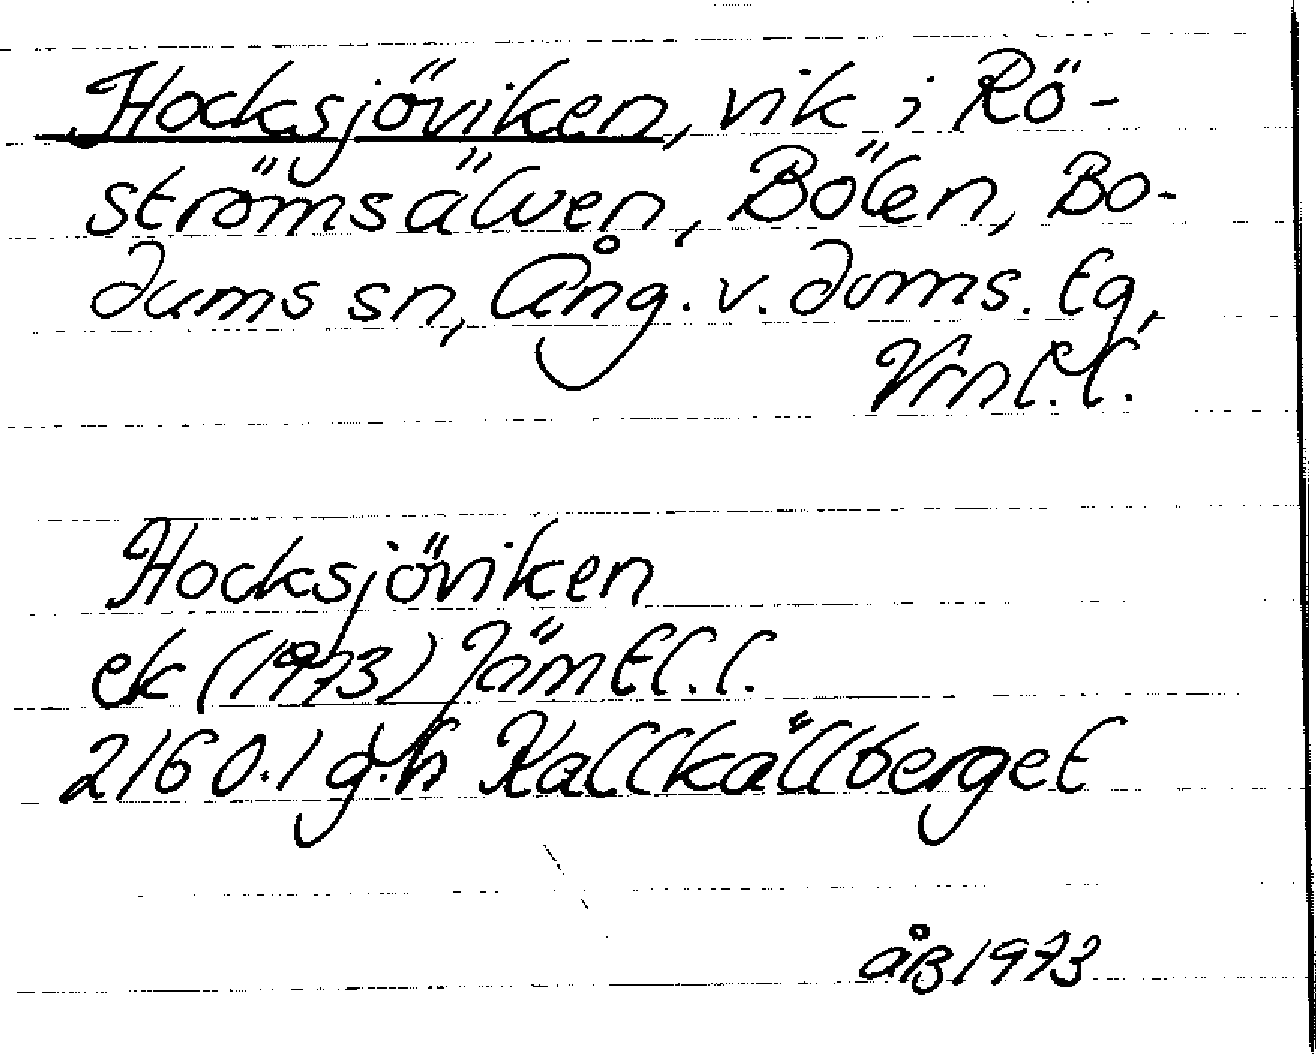 Hocksjöviken, vik i Rö-
strömsälven, Bölen, Bo-
dums sn, Ång. v. doms. tg,
Vrnl. l.
Hocksjöviken
ek (1973) Jämtl. l.
2160.1 g.h Kallkällberget
åB 1973